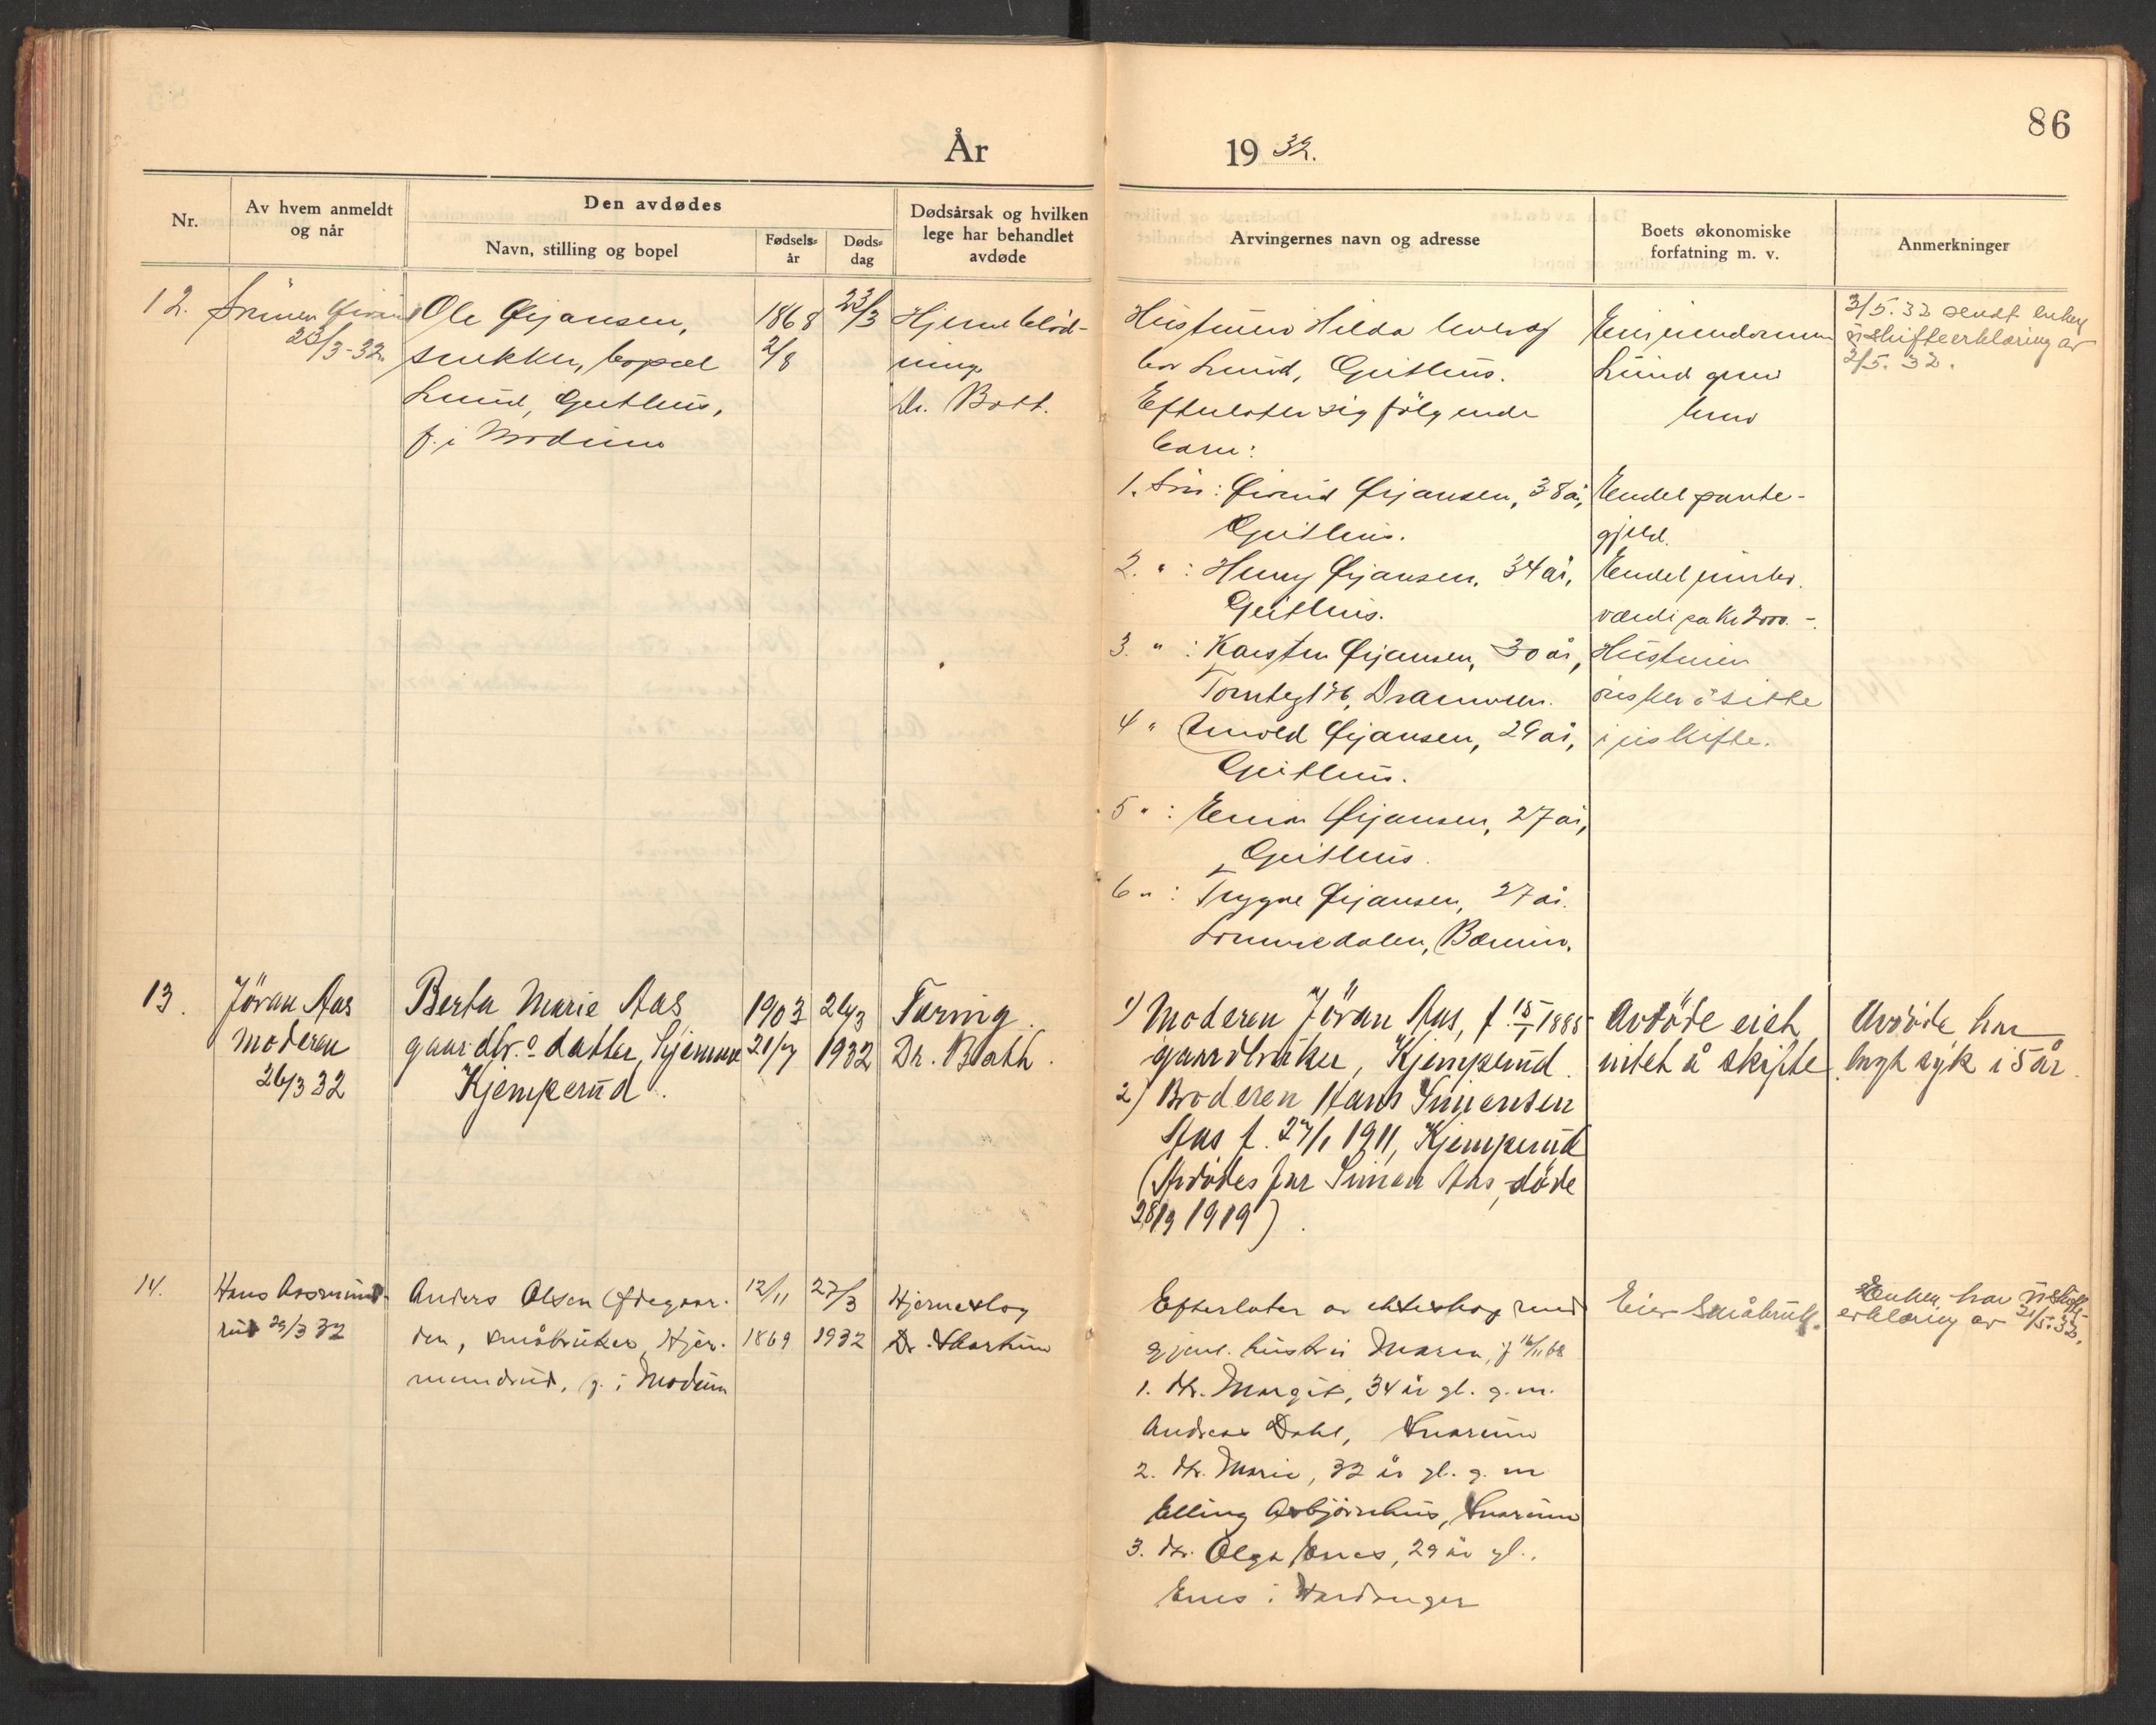 86
År 1932.
Nr.
Av hvem anmeldt
og når
Den avdødes
Navn, stilling og bopel
Fødsels-
år
Døds-
dag
Dødsårsak og hvilken
lege har behandlet
avdøde
Arvingernes navn og adresse
Boets økonomiske
forfatning m. v.
Anmerkninger
12.
Sønnen Øivind
23/3-32.
Ole Øijansen,
snekker, bopæl
Lund, Geithus,
f. i Modum
1868
2/8
23/3
Hjerneblød-
ning
Dr. Bott.
Hustruen Hilda lever og
bor Lund, Geithus.
Efterlater sig følgende
barn:
1. Søn: Øivind Øijansen, 38 år,
Geithus.
2. " : Henry Øijansen, 34 år,
Geithus.
3. " : Karsten Øijansen, 30 år,
Drammen.
4 " Arnold Øijansen, 29 år,
Geithus.
5 " : Einar Øijansen, 27 år,
Geithus.
6 " : Trygve Øijansen, 27 år.
Lommedalen, Bærum.
Eier eiendommen
Lund
Endel pante-
gjeld.
Endel innbo.
værdi ca kr 2000.-.
Hustruen
ønsker å sitte
i uskifte.
3/5.32 sendt enken
uskifteerklæring av
2/5.32.
13.
Jöran Aas
Moderen
26/3 32
Berta Marie Aas
gaardbr.s datter, hjemme
Kjemperud.
1903
21/7
24/3
1932
Tæring.
Dr. Bath.
1) Moderen Jöran Aas, f. 15/1 1885
gaardbruker, Kjemperud.
2) Broderen Hans Simensen
Aas f. 27/1 1911, Kjemperud
(Avdödes far Simen Aas, döde
28/9 1919).
Avdöde eiet
intet å skifte
Avdöde har
lagt syk i 5 år.
14.
Hans Aasmund-
rud 29/3 32
Anders Olsen Ødegaar-
den, småbruker, Hjer-
mundrud, f. i Modum
12/11
1869
27/3
1932
Hjerneslag
Dr.
Efterlater av ekteskap med
gjenl. hustru Maren, f 16/11 68
1. dtr. Margit, 34 år gl. g.m.
Andreas Dahl, Snarum
2. dtr. Marie, 32 år gl. g. m
Elling Asbjørnhus, Snarum
3. dtr. Olga Enes, 29 år gl.,
Enes i Hardanger
Eier Småbruk.
Enken har uskifte-
erklæring av 21/5.32.